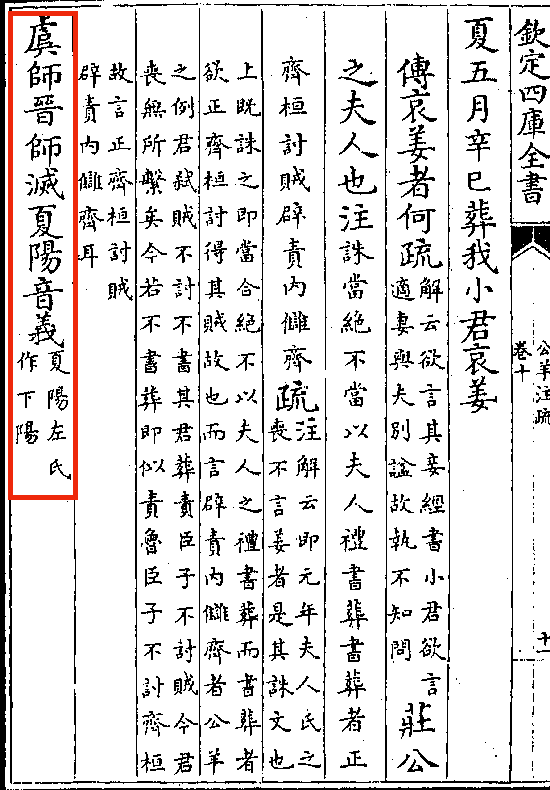 欽定四庫全書
公羊注疏
卷十
十一
夏五月辛巳葬我小君哀姜
傳哀姜者何疏
解云欲言其妾經書小君欲言
適妻與夫別諡故執不知問
莊公
之夫人也注誅當絶不當以夫人禮書葬書葬者正
齊桓討賊辟責内讎齊疏
注解云即元年夫人氏之
喪不言姜者是其誅文也
上既誅之即當合絶不以夫人之禮書葬而書葬者
欲正齊桓討得其賊故也而言辟責内讎齊者公羊
之例君弑賊不討不書其君葬責臣子不討賊今君
喪無所繫矣今若不書葬即似責魯臣子不討齊桓
故言正齊桓討賊
辟責内讎齊耳
虞師晉師滅夏陽音義
夏陽左氏
作下陽